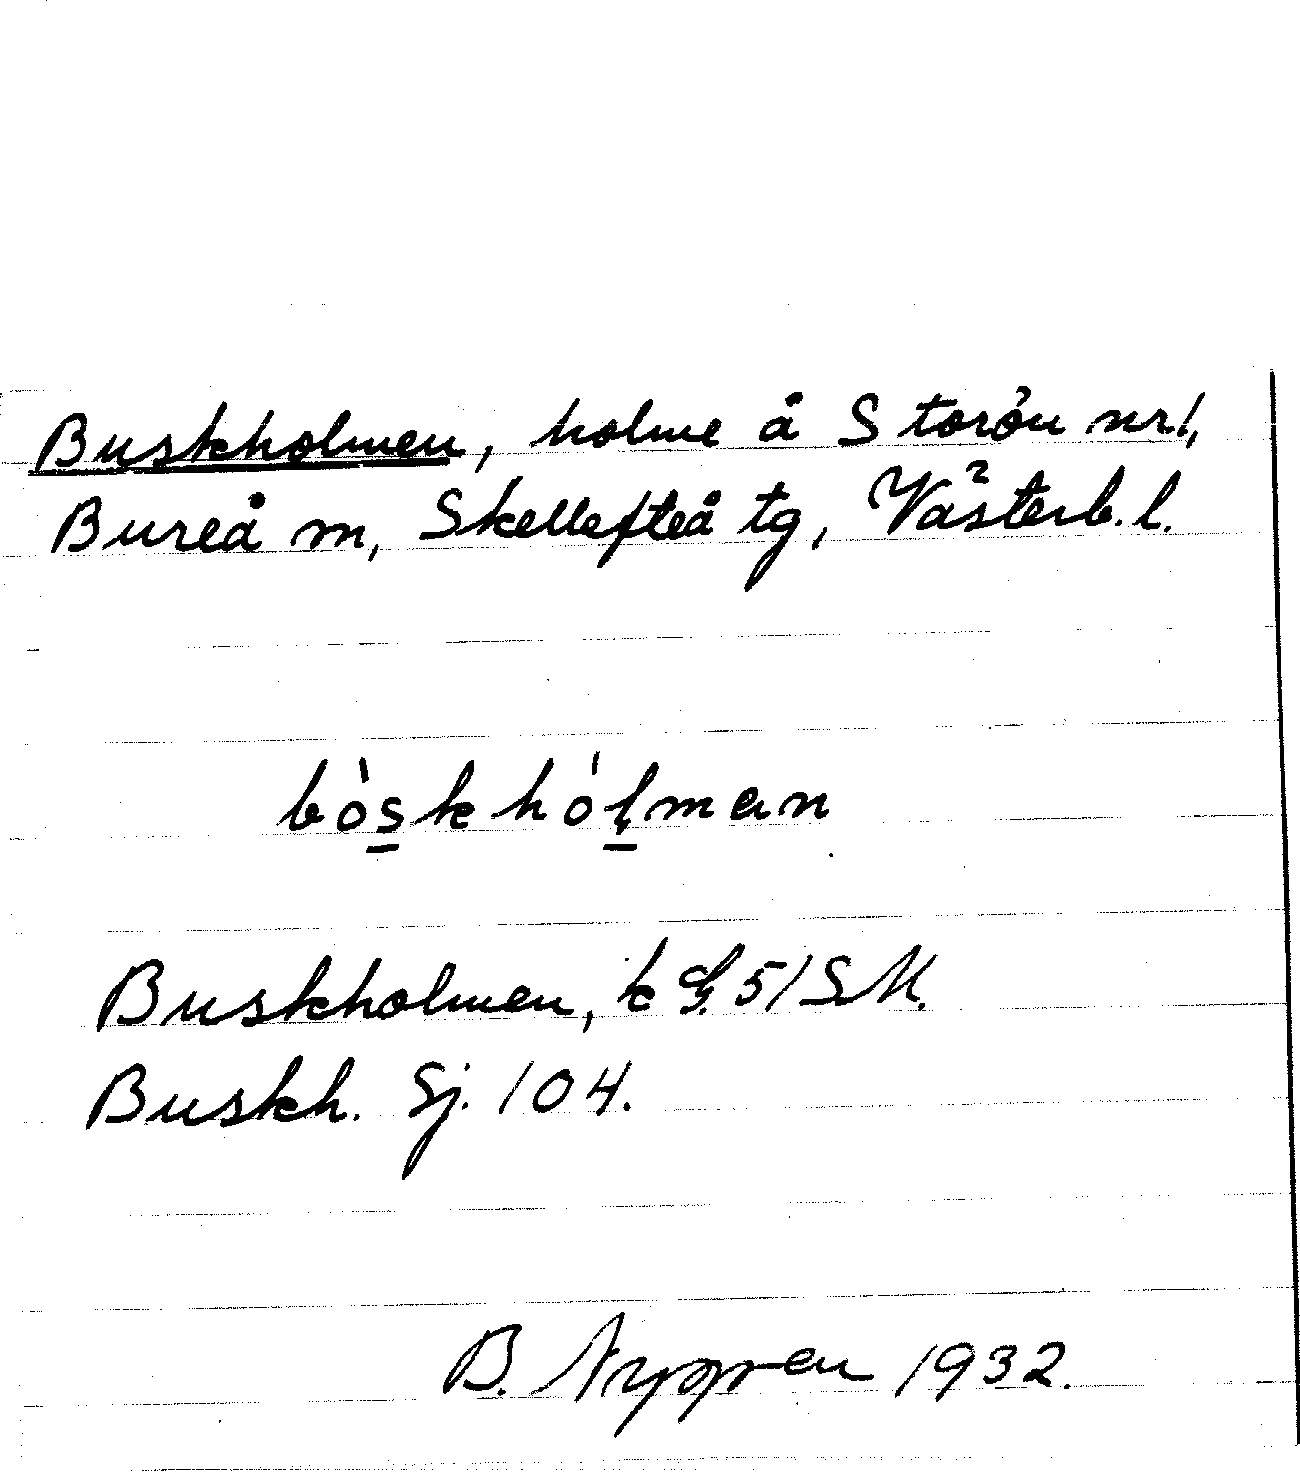 Buskholmen, holme å Storön nr 1,
Bureå m, Skellefteå tg, Västerb. l.
bòskhólman
Buskholmen, k G. 51 S.M.
Buskh. Sj. 104.
B. 1932.